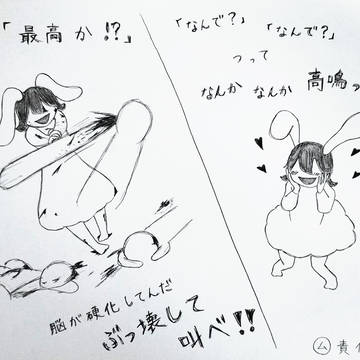 「最高か!?」
脳が硬化してんだ
ぶっ壊して
叫べ!!
「なんで?」「なんで?」
つって
なんか なんか 高鳴っ
ム 責任